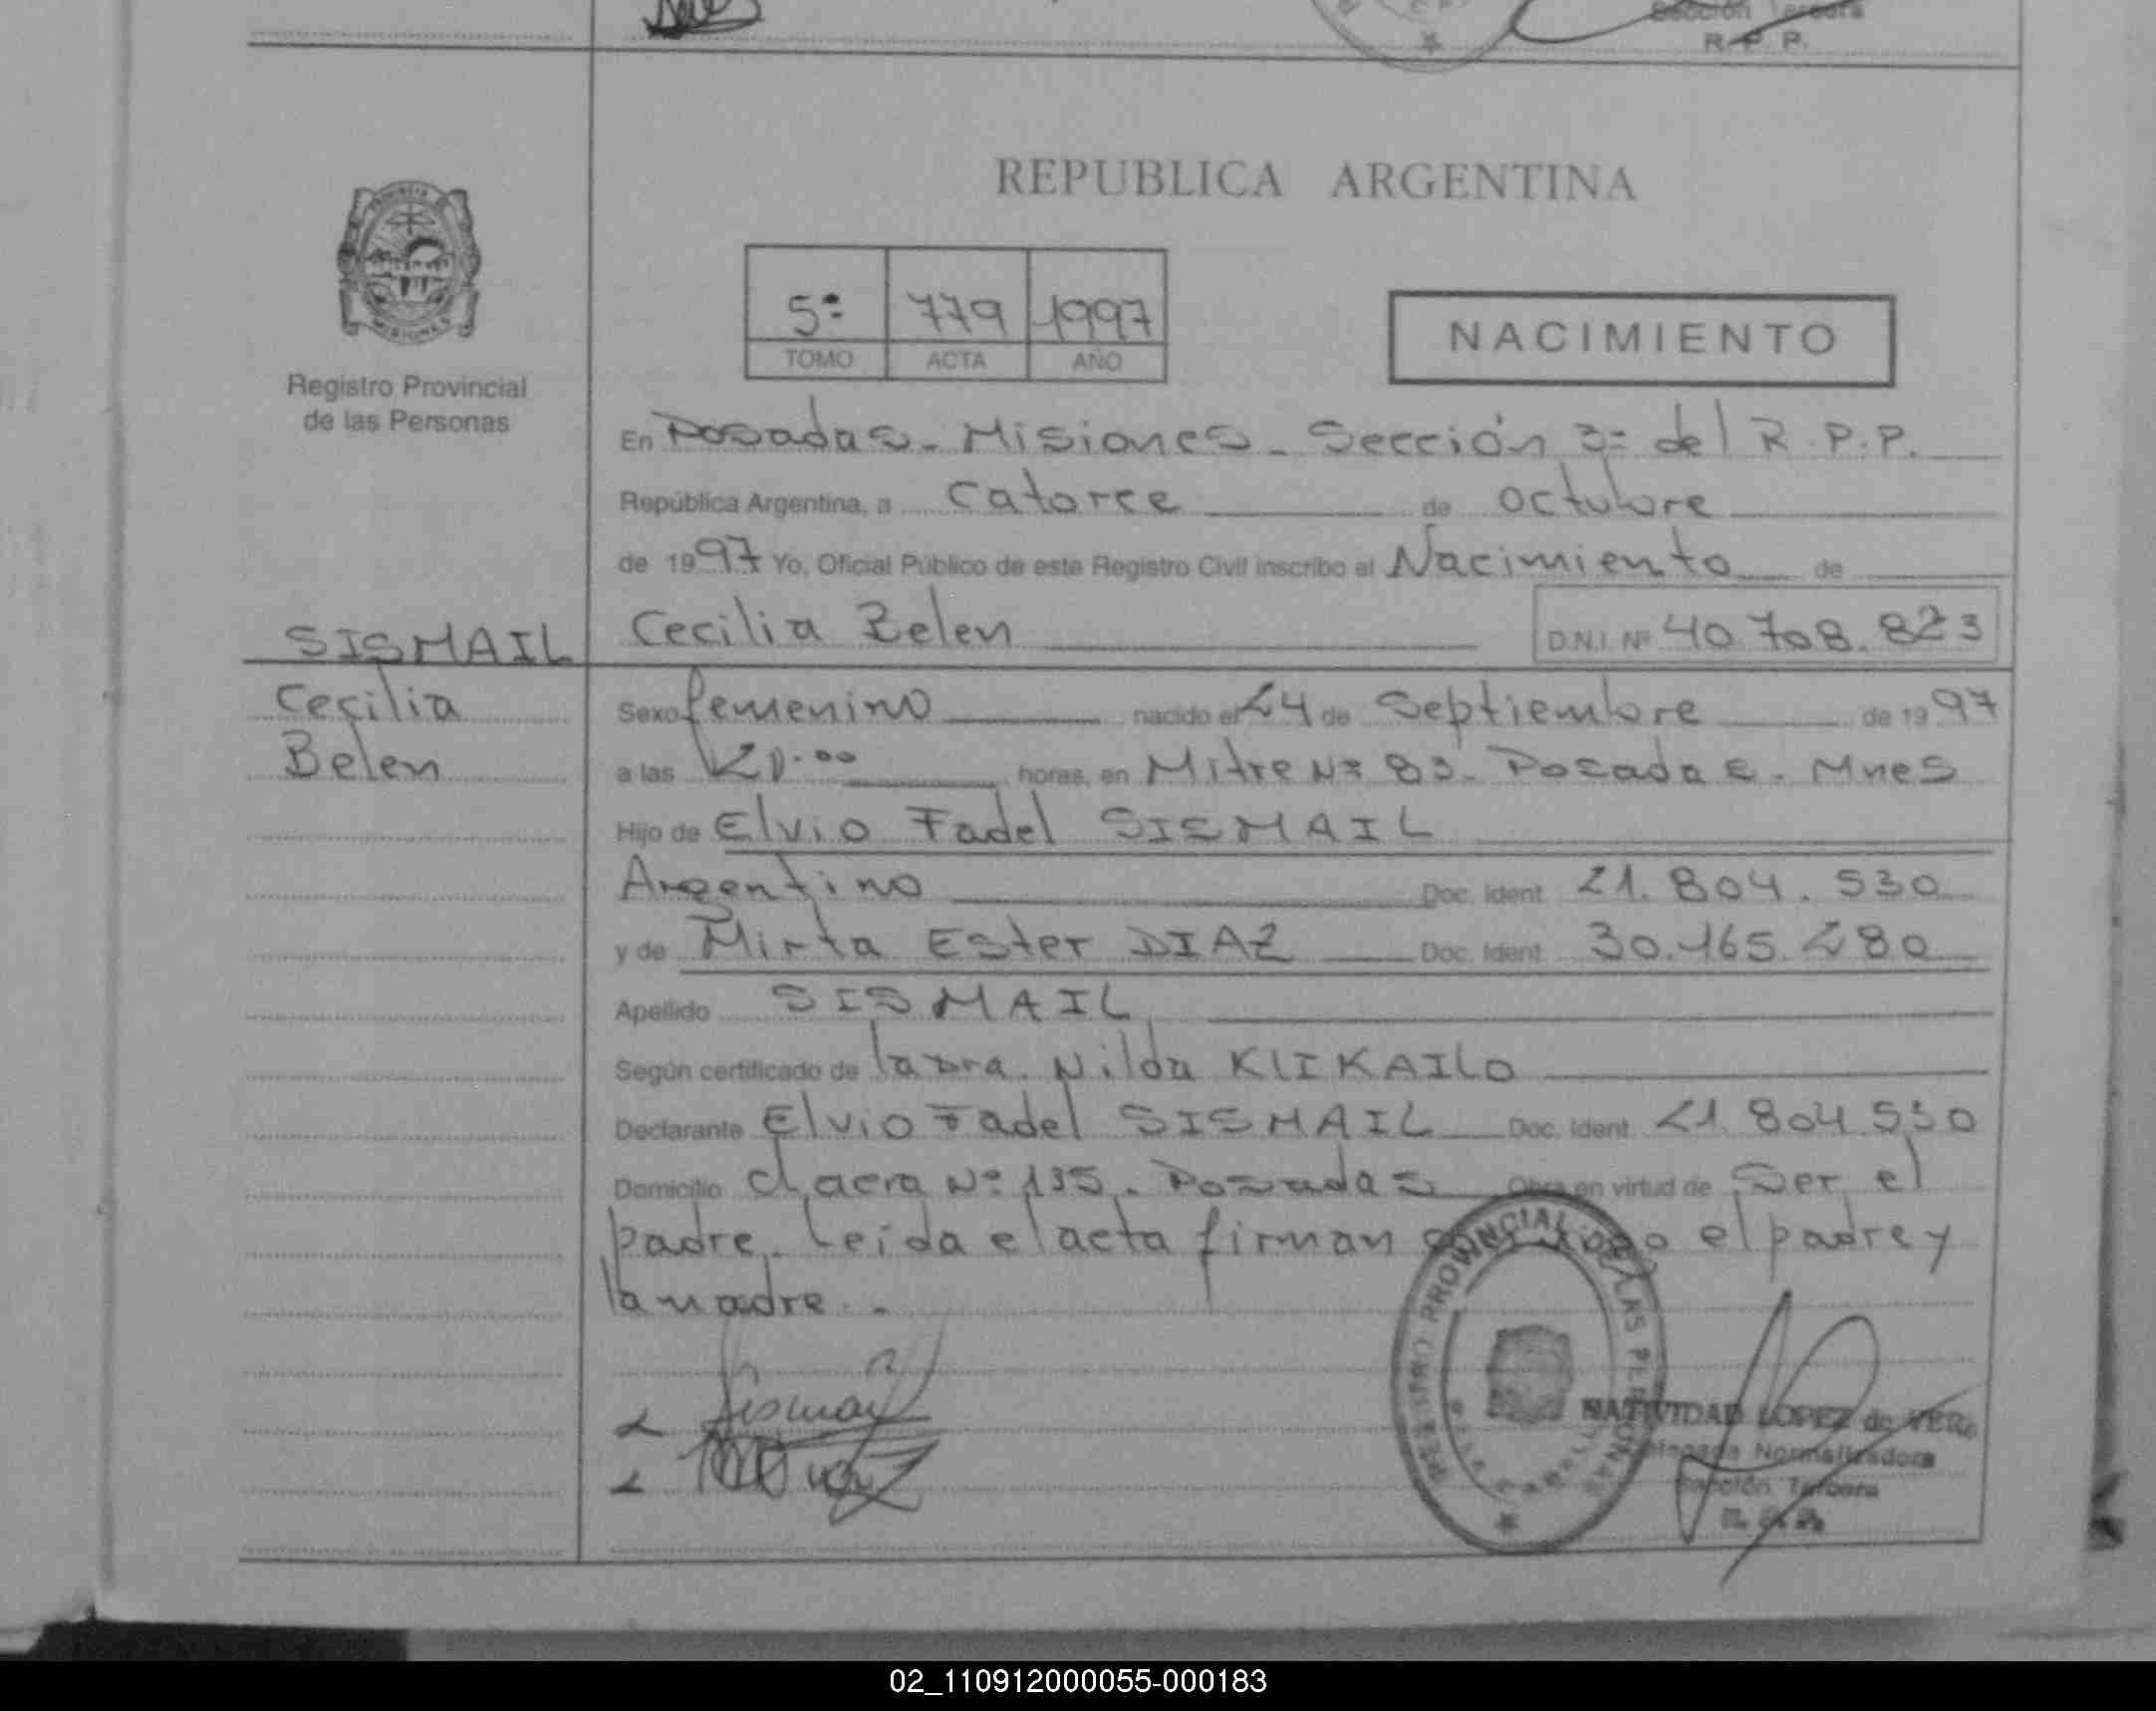 Sección Tercera
R. P. P.
REPUBLICA ARGENTINA
5º 779 1997
TOMO ACTA AÑO
NACIMIENTO
Registro Provincial
de las Personas
En Posadas - Misiones - Sección 3º del R.P.P.
República Argentina, a catorce de octubre
de 1997 Yo, Oficial Público de este Registro Civil inscribo el Nacimiento de
SISMAIL Cecilia Belen D.N.I. Nº 40.708.823
Cecilia
Belen
Sexo femenino nacido el 24 de Septiembre de 1997
a las horas, en Mitre Nº 83. Posadas - Mnes
Hijo de Elvio Fadel SISMAIL
Argentino Doc. Ident. 21.804.530
y de Mirta Ester DIAZ Doc. Ident. 30.165.280
Apellido SISMAIL
Según certificado de la Dra. Nilda KLIKAILO
Declarante Elvio Fadel SISMAIL Doc. Ident. 21.804.530
Domicilio Chacra Nº 135. Posadas Obra en virtud de Ser el
padre. Leida el acta firman el padre y
la madre.
REGISTRO PROVINCIAL DE LAS PERSONAS
NATIVIDAD LOPEZ de VERA
Delegada Normalizadora
Sección Tercera
R.P.P.
02_110912000055-000183